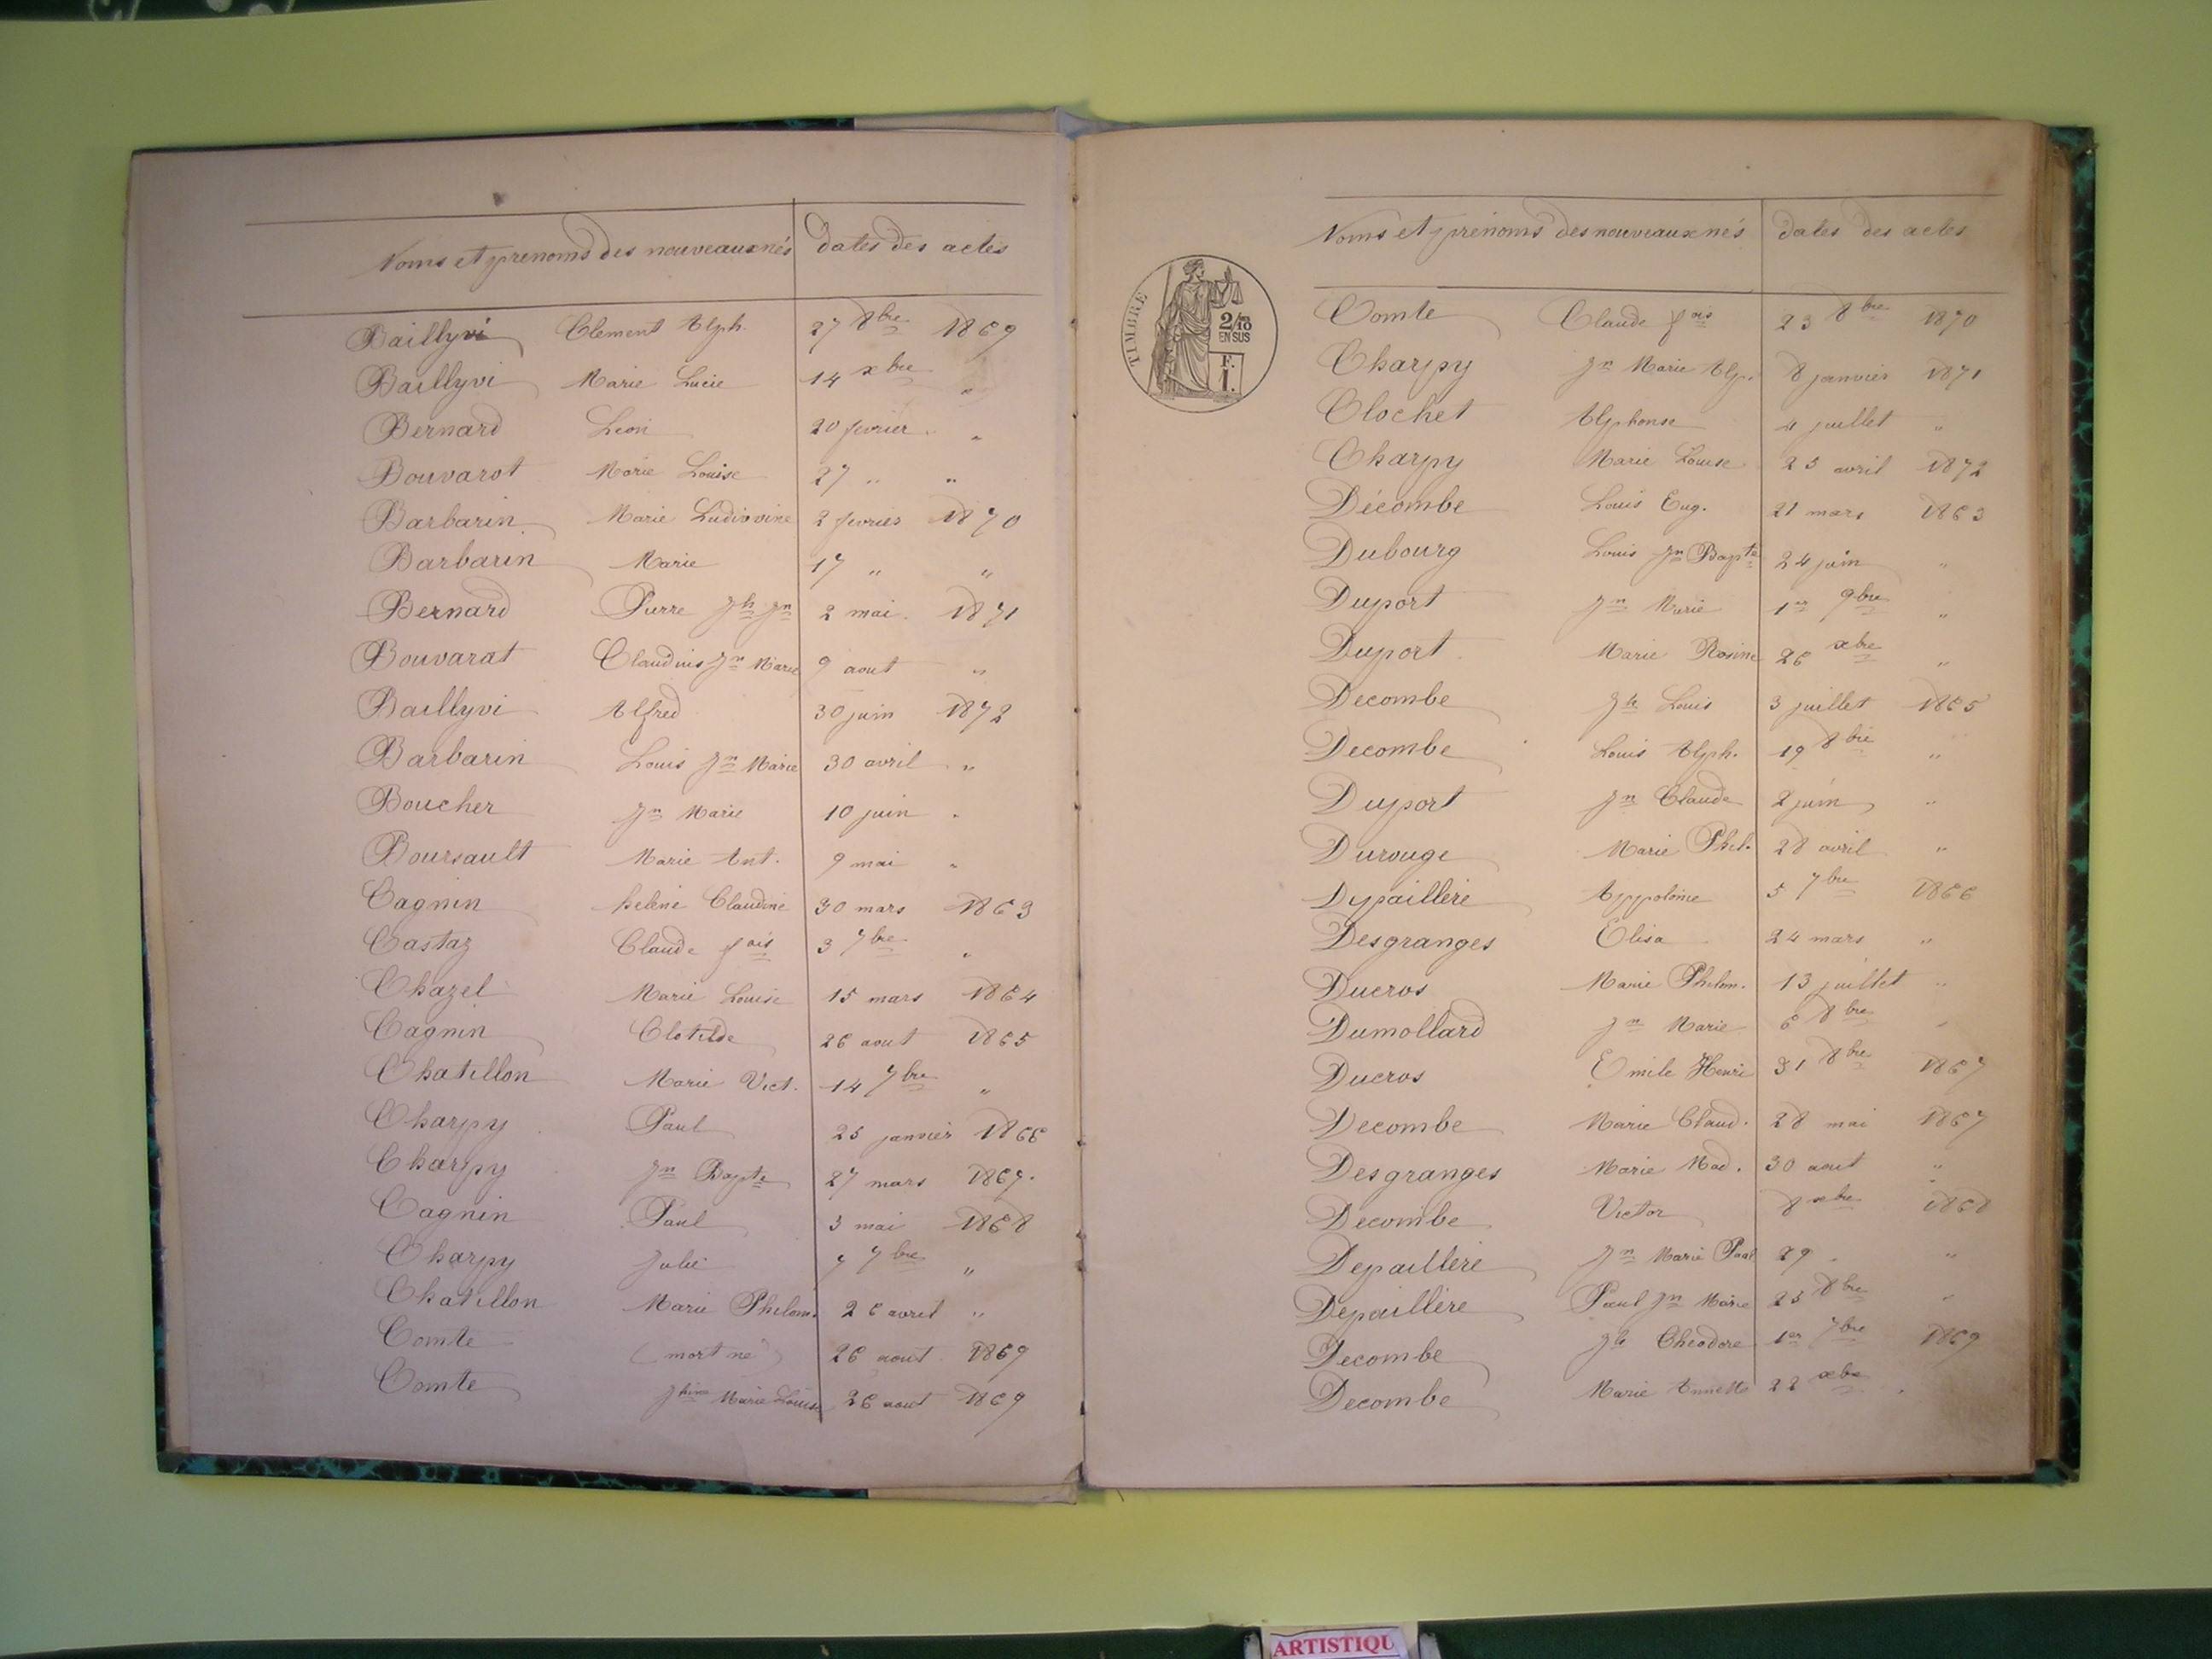 Noms et prenoms des nouveaux nés dates des actes
Baillyvi Clement Alph. 27 8bre 1869
Baillyvi Marie Lucie 14 xbre "
Bernard Léon 20 fevrier "
Bouvarot Marie Louise 27 " "
Barbarin Marie Ludivvine 2 fevrier 1870
Barbarin Marie 17 " "
Bernard Pierre Jh Jn 2 mai 1871
Bouvarat Claudius Jn Marie 9 aout "
Baillyvi Alfred 30 juin 1872
Barbarin Louis Jn Marie 30 avril "
Boucher Jn Marie 10 juin "
Boursault Marie Ant. 9 mai "
Cagnin helene Claudine 30 mars 1863
Castaz Claude fois 3 7bre "
Chazel Marie Louise 15 mars 1864
Cagnin Clotilde 26 aout 1865
Chatillon Marie Vict. 14 7bre "
Charpy Paul 25 janvier 1866
Charpy Jn Bapte 27 mars 1867.
Cagnin Paul 3 mai 1868
Charpy Julie 7 7bre "
Chatillon Marie Philom. 26 avril "
Comte (mort né) 26 aout 1869
Comte Jhine Marie Louise 26 aout 1869
Noms et prénoms des nouveaux nés dates des actes
TIMBRE
2/10
EN SUS
F.
1.
Comte Claude fois 23 8bre 1870
Charpy Jn Marie Alp. 8 janvier 1871
Clochet Alphonse 4 juillet "
Charpy Marie Louise 25 avril 1872
Décombe Louis Eug. 21 mars 1863
Dubourg Louis Jn Bapte 24 juin "
Duport Jn Marie 1er 9bre "
Duport Marie Rosine 26 xbre "
Decombe Jh Louis 3 juillet 1865
Decombe Louis Alph. 19 8bre "
Duport Jn Claude 2 juin "
Durouge Marie Phil. 28 avril "
Dépaillère Appolonie 5 7bre 1866
Desgranges Elisa 24 mars "
Ducros Marie Philom. 13 juillet "
Dumollard Jn Marie 6 8bre "
Ducros Emile Henri 31 8bre 1867
Decombe Marie Claud. 28 mai 1867
Desgranges Marie Mad. 30 aout "
Decombe Victor 8 xbre 1868
Depaillère Jn Marie Paul 29 " "
Depaillère Paul Jn Marie 25 8bre "
Decombe Jh Théodore 1er 7bre 1869
Decombe Marie Annette 22 xbre "
ARTISTIQU